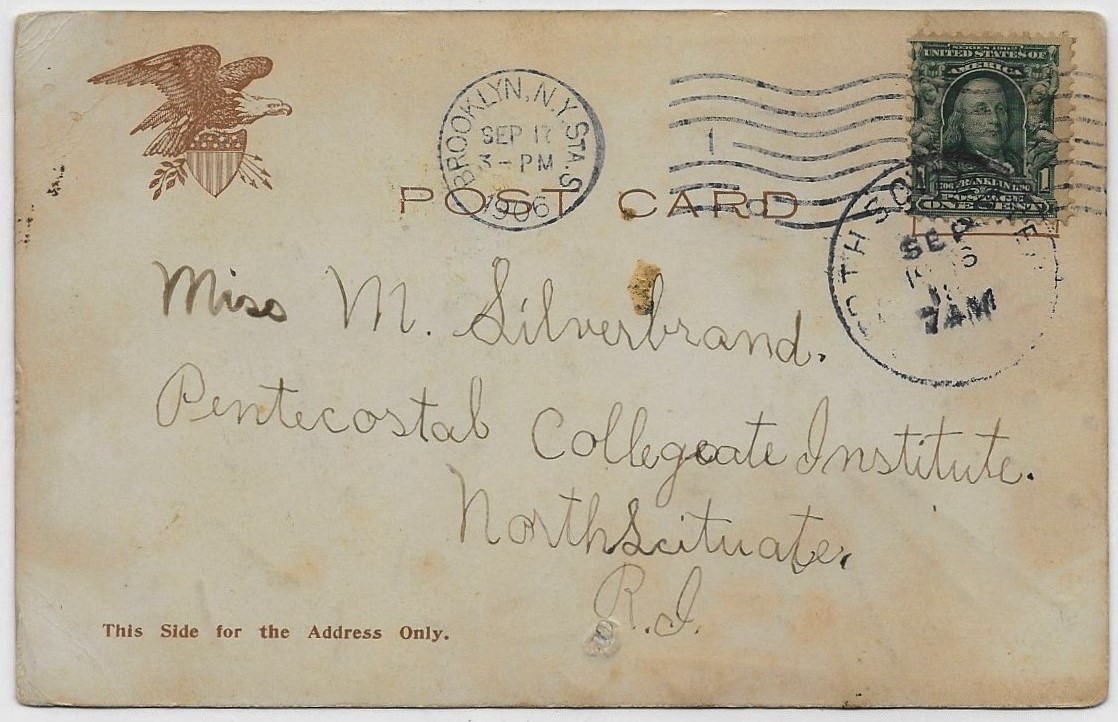 BROOKLYN, N.Y. STA. S
SEP 17
3 - PM
1906
1
SERIES 1902
UNITED STATES OF
AMERICA
FRANKLIN
1
POSTAGE
ONE CENT
POST CARD
SEP
7 AM
Miss M. Silverbrand.
Pentecostal Collegeate Institute.
North Scituate,
R.I.
This Side for the Address Only.